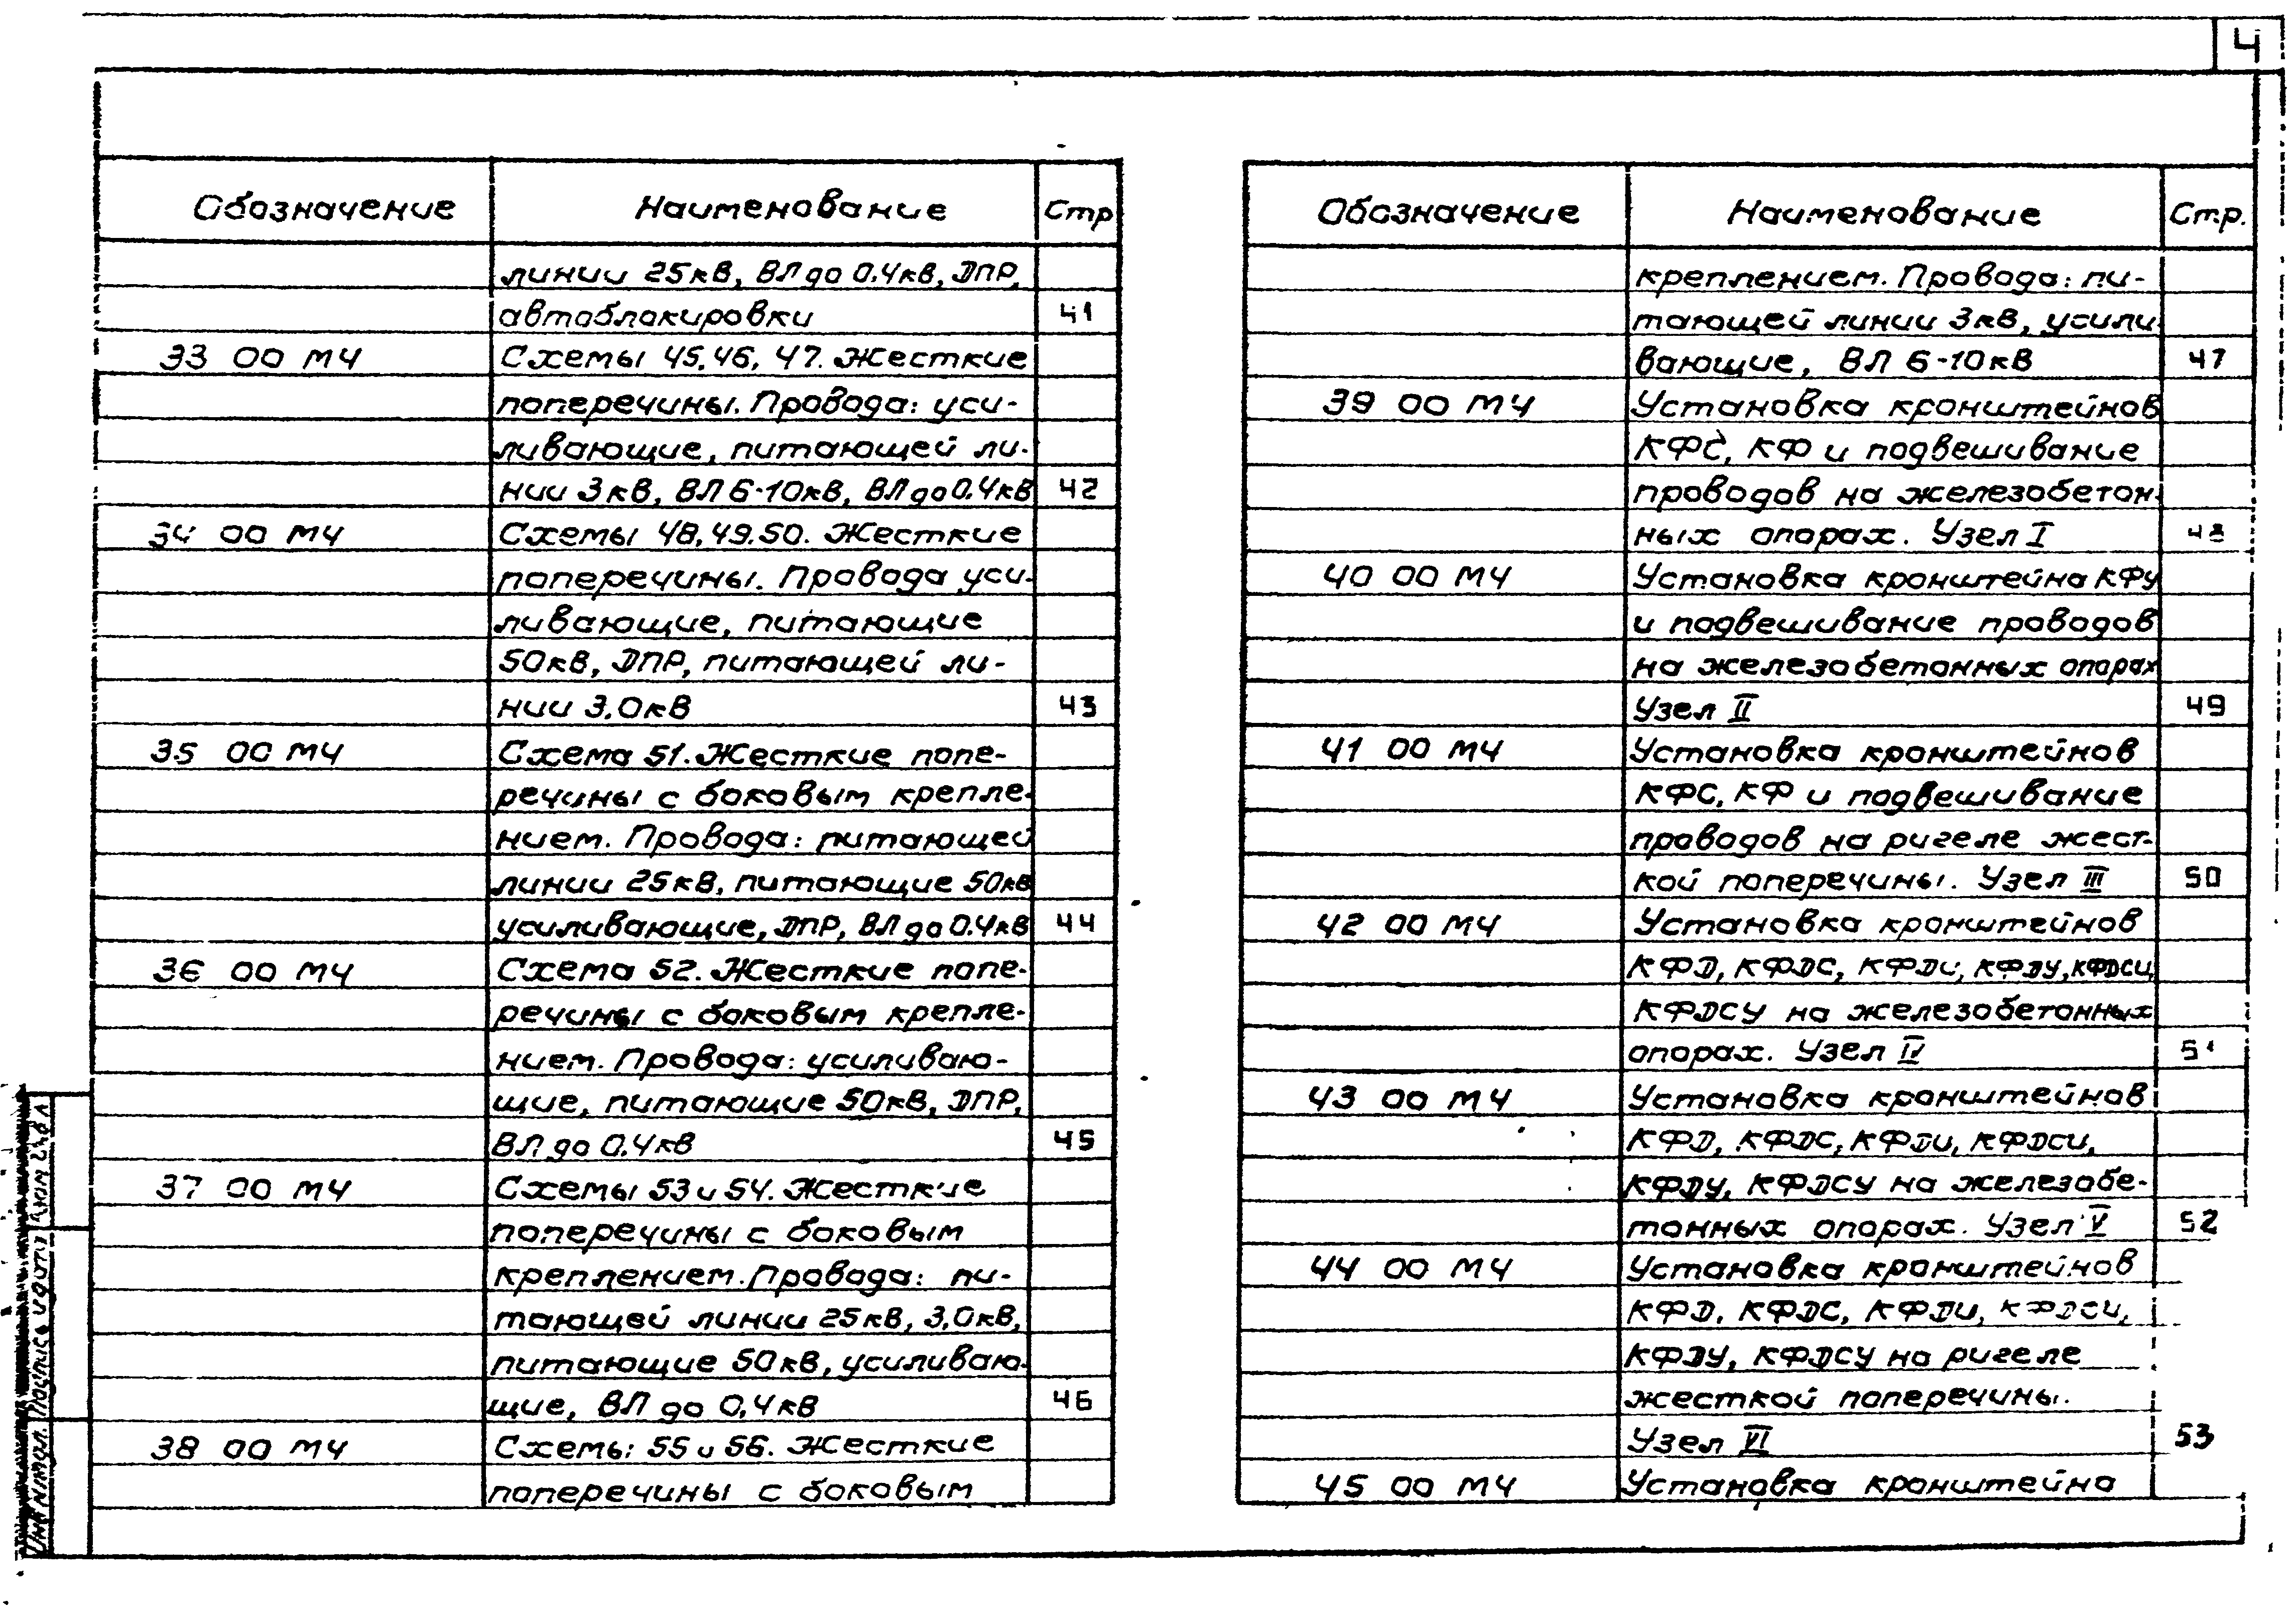 4
Обозначение Наименование Стр
линии 25кВ, ВЛ до 0.4кВ, ДПР,
автоблокировки 41
33 00 МЧ Схемы 45,46, 47. Жесткие
поперечины. Провода: уси-
ливающие, питающей ли-
нии 3кВ, ВЛ 6-10кВ, ВЛ до 0.4кВ 42
34 00 МЧ Схемы 48,49,50. Жесткие
поперечины. Провода уси-
ливающие, питающие
50кВ, ДПР, питающей ли-
нии 3.0кВ 43
35 00 МЧ Схема 51. Жесткие попе-
речины с боковым крепле-
нием. Провода: питающей
линии 25кВ, питающие 50кВ
усиливающие, ДПР, ВЛ до 0.4кВ 44
36 00 МЧ Схема 52. Жесткие попе-
речины с боковым крепле-
нием. Провода: усиливаю-
щие, питающие 50кВ, ДПР,
ВЛ до 0.4кВ 45
37 00 МЧ Схемы 53 и 54. Жесткие
поперечины с боковым
креплением. Провода: пи-
тающей линии 25кВ, 3,0кВ,
питающие 50кВ, усиливаю-
щие, ВЛ до 0,4кВ 46
38 00 МЧ Схемы 55 и 56. Жесткие
поперечины с боковым
Обозначение Наименование Стр.
креплением. Провода: пи-
тающей линии 3кВ, усили
вающие, ВЛ 6-10кВ 47
39 00 МЧ Установка кронштейнов
КФС, КФ и подвешивание
проводов на железобетон-
ных опорах. Узел I 48
40 00 МЧ Установка кронштейна КФУ
и подвешивание проводов
на железобетонных опорах
Узел II 49
41 00 МЧ Установка кронштейнов
КФС, КФ и подвешивание
проводов на ригеле жест-
кой поперечины. Узел III 50
42 00 МЧ Установка кронштейнов
КФД, КФДС, КФДИ, КФДУ, КФДСИ,
КФДСУ на железобетонных
опорах. Узел IV 51
43 00 МЧ Установка кронштейнов
КФД, КФДС, КФДИ, КФДСИ,
КФДУ, КФДСУ на железобе-
тонных опорах. Узел V 52
44 00 МЧ Установка кронштейнов
КФД, КФДС, КФДИ, КФДСИ,
КФДУ, КФДСУ на ригеле
жесткой поперечины.
Узел VI 53
45 00 МЧ Установка кронштейна
Инв N подл. Подпись и дата